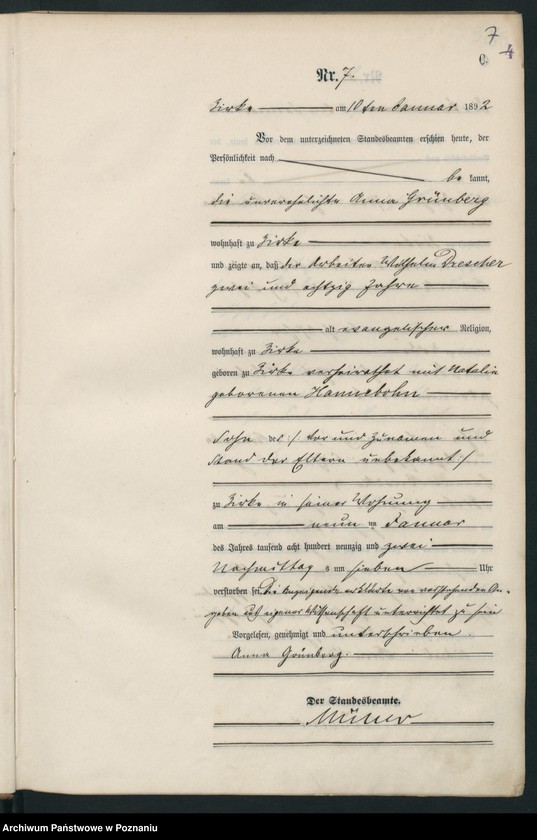 7
4
C.
Nr. 7.
Zirke am 10ten Januar 1892
Vor dem unterzeichneten Standesbeamten erschien heute, der
Persönlichkeit nach
be kannt,
die unverehelichte Anna Grünberg
wohnhaft zu Zirke
und zeigte an, daß der Arbeiter Wilhelm Drescher
zwei und achtzig Jahre
alt evangelischer Religion,
wohnhaft zu Zirke
geboren zu Zirke verheirathet mit Natalie
geborenen Hannebohn
Sohn des /: Vor und Zunamen und
Stand der Eltern unbekannt :/
zu Zirke in seiner Wohnung
am neun ten Januar
des Jahres tausend acht hundert neunzig und zwei
Nachmittag s um sieben Uhr
verstorben sei. Die Anzeigende erklärte von vorstehenden An-
gaben aus eigener Wissenschaft unterrichtet zu sein
Vorgelesen, genehmigt und unterschrieben.
Anna Grünberg.
Der Standesbeamte.
Archiwum Państwowe w Poznaniu